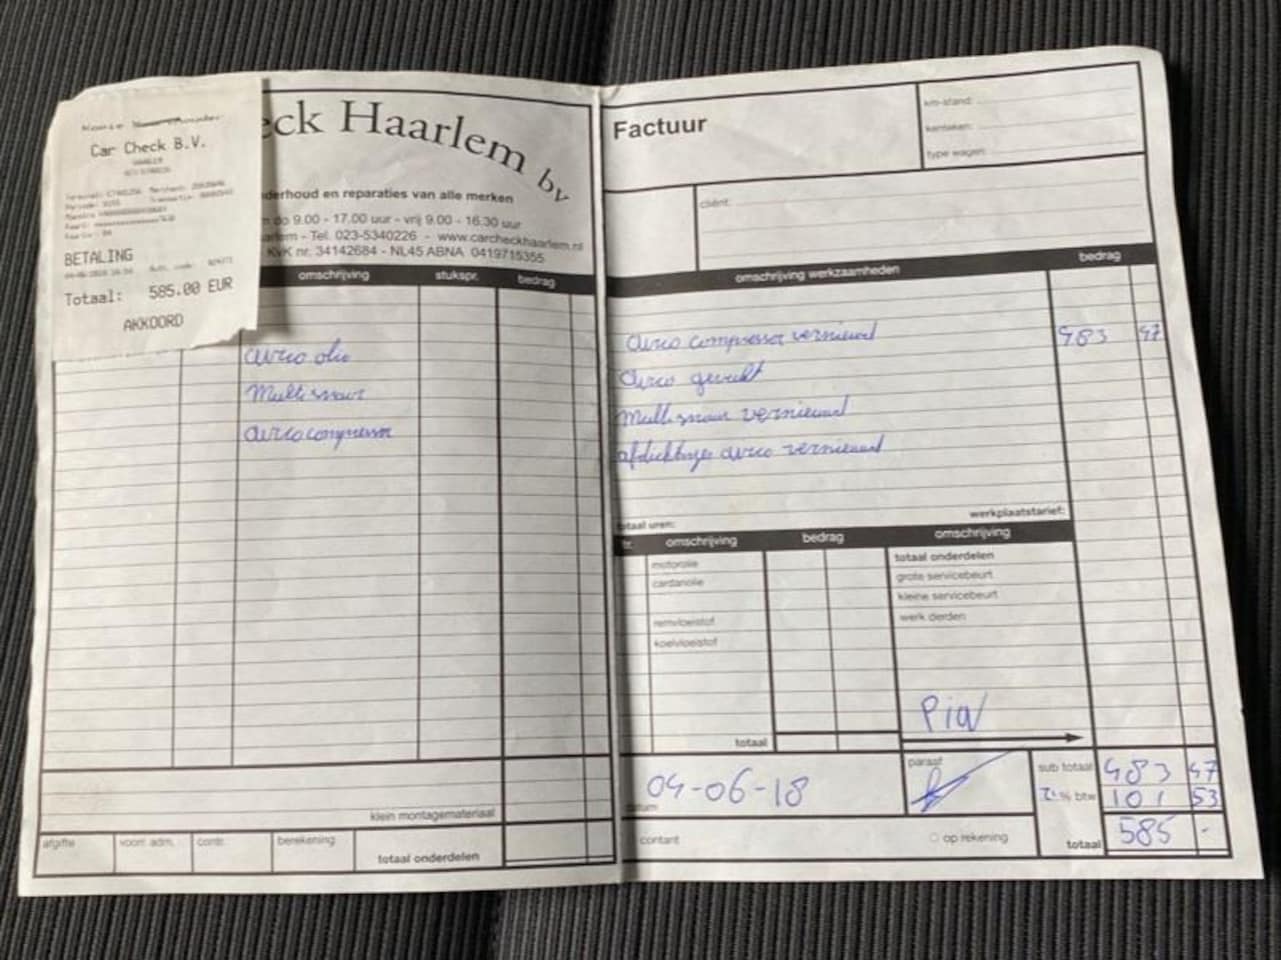 Car Check B.V.
HAARLEM
BETALING
Totaal: 585.00 EUR
AKKOORD
eck Haarlem bv
derhoud en reparaties van alle merken
do 9.00 - 17.00 uur - vrij 9.00 - 16.30 uur
arlem - Tel. 023-5340226 - www.carcheckhaarlem.nl
KvK nr. 34142684 - NL45 ABNA 0419715355
omschrijving stukspr. bedrag
airco olie
Multisnaar
aircocompressor
klein montagemateriaal
afgifte voorr. adm. contr. berekening totaal onderdelen
Factuur
km-stand:
kenteken:
type wagen:
cliënt:
omschrijving werkzaamheden bedrag
Airco compressor vernieuwd 483 47
Airco gevuld
Multisnaar vernieuwd
afdichtingen airco vernieuwd
totaal uren: werkplaatstarief:
tr. omschrijving bedrag omschrijving
motorolie totaal onderdelen
cardanolie grote servicebeurt
kleine servicebeurt
remvloeistof werk derden
koelvloeistof
Pin
totaal
datum 04-06-18 paraaf sub totaal 483 47
21 % btw 101 53
contant op rekening totaal 585 -